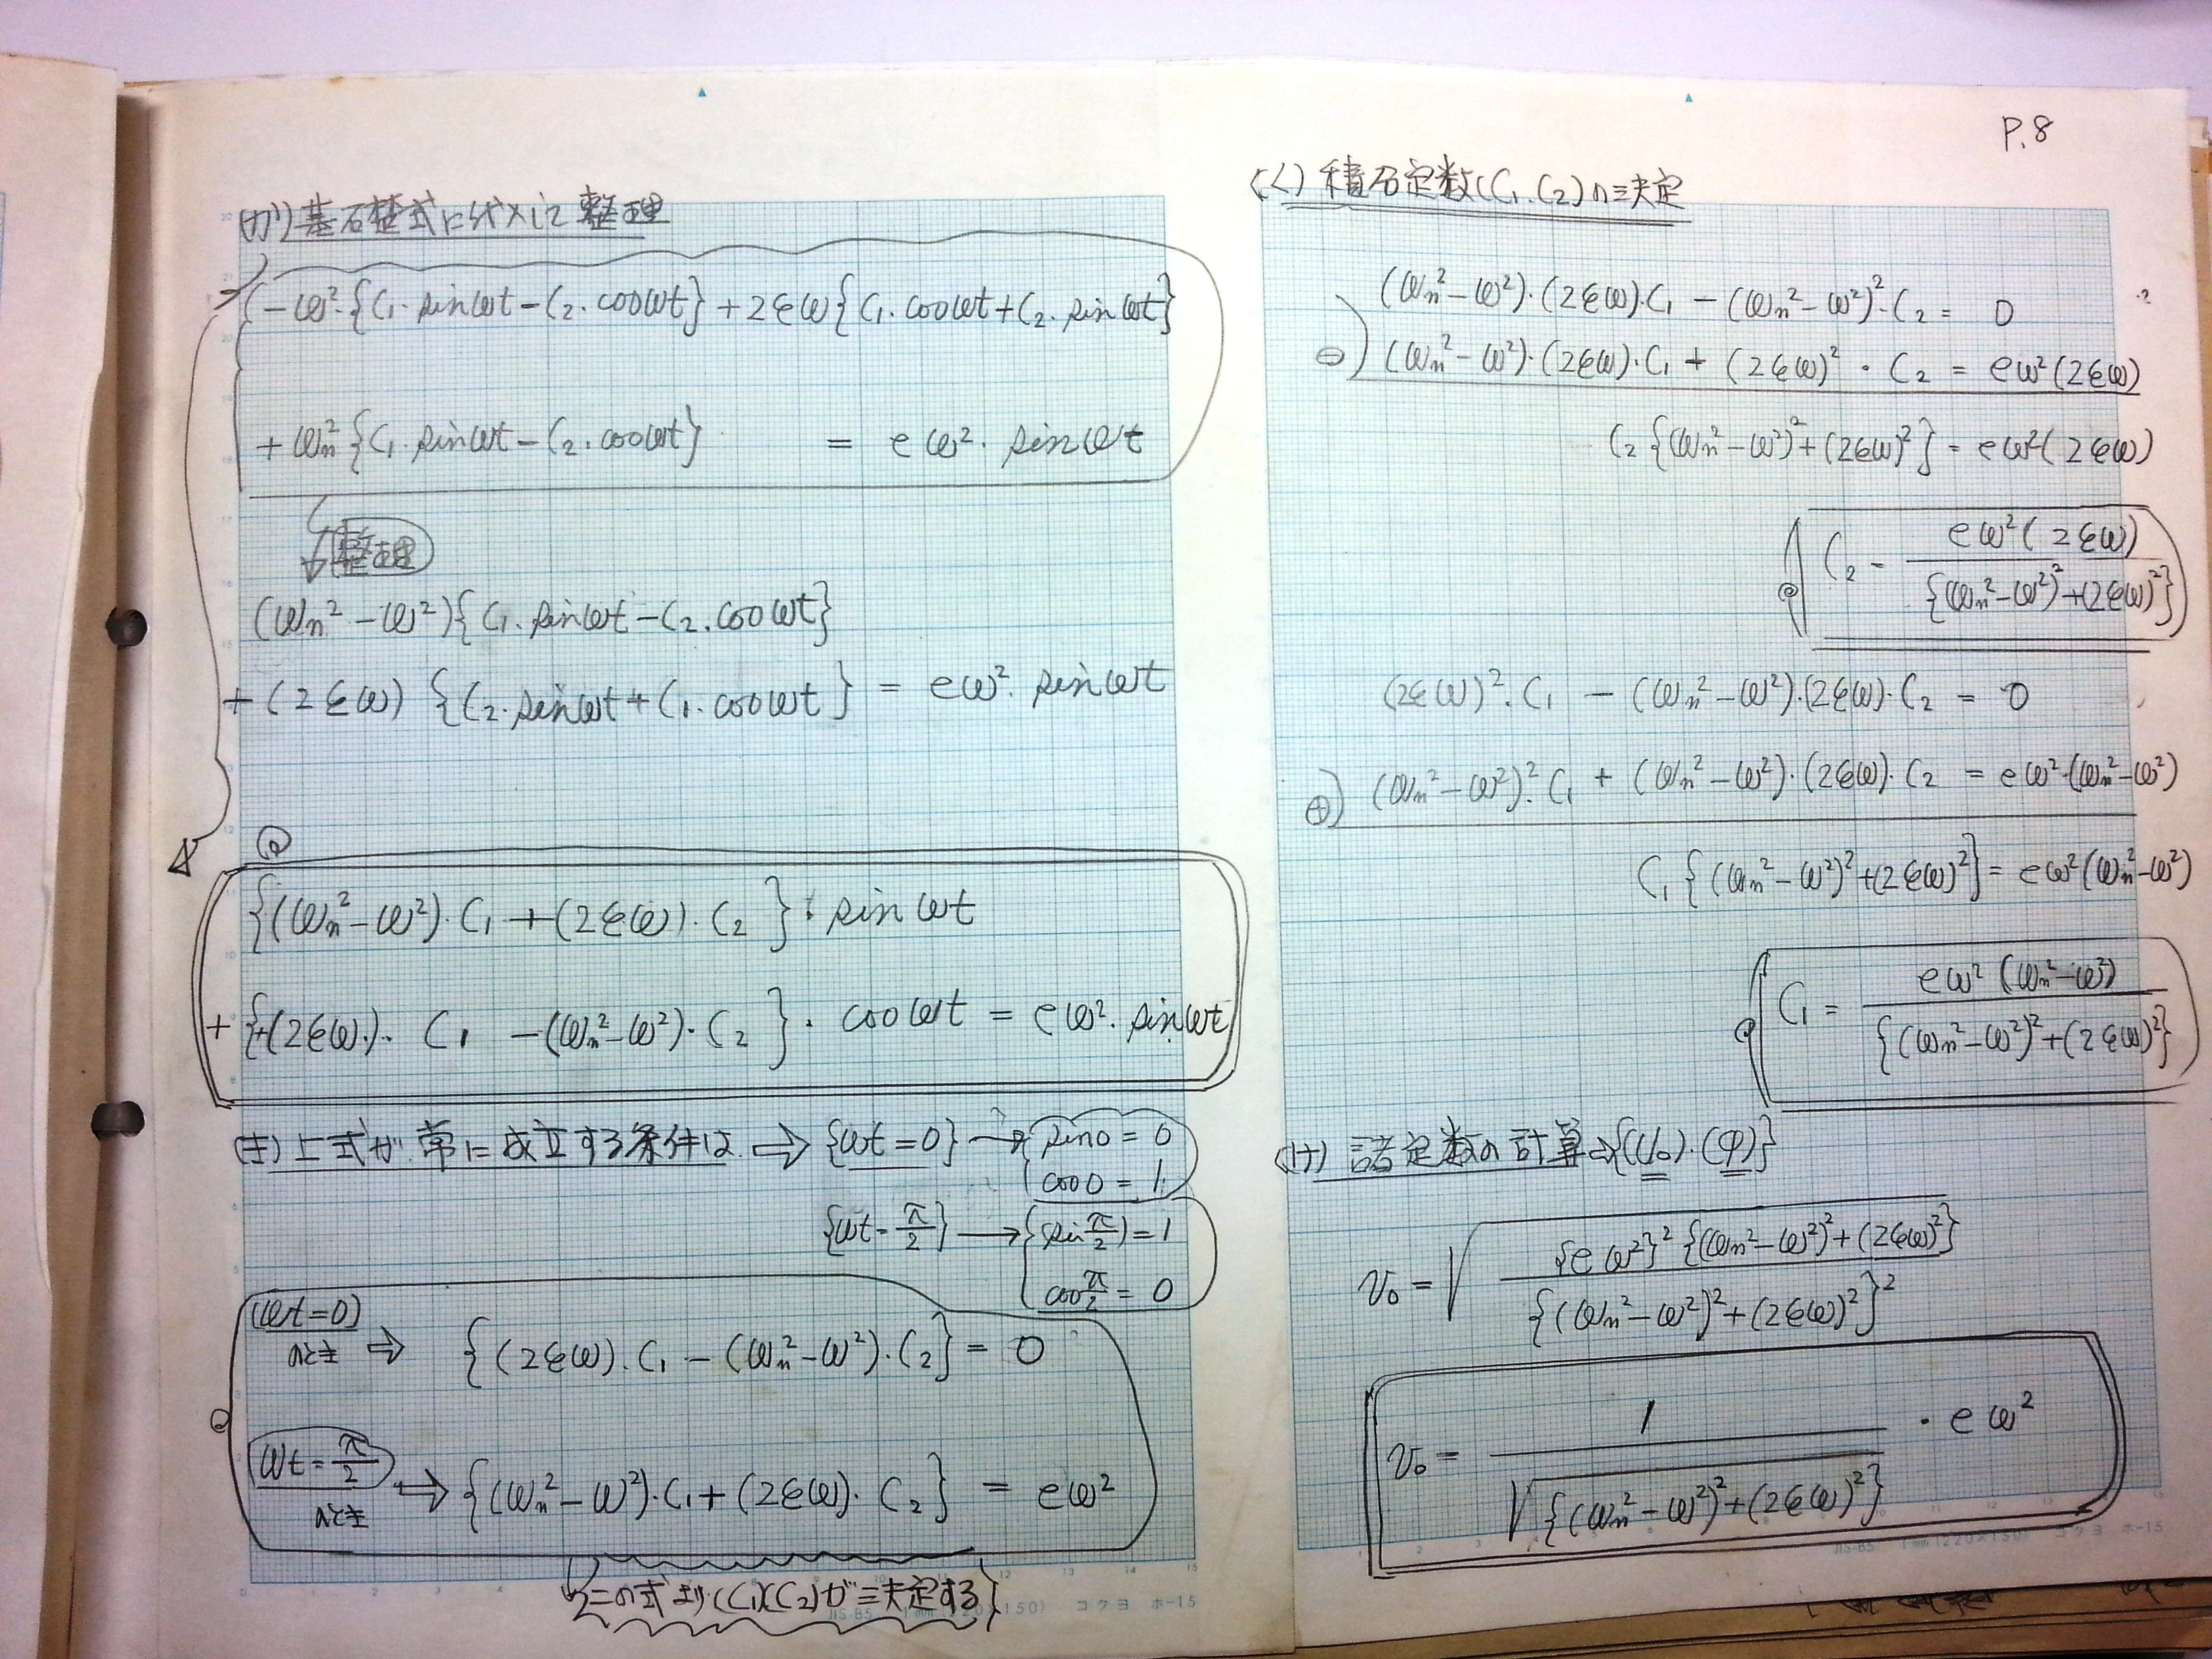 (カ) 基礎式に代入して整理
-ω²·{C₁·sinωt-C₂·cosωt}+2εω{C₁·cosωt+C₂·sinωt}
+ωn²{C₁·sinωt-C₂·cosωt} = eω²·sinωt
整理
(ωn²-ω²){C₁·sinωt-C₂·cosωt}
+(2εω){C₂·sinωt+C₁·cosωt} = eω²·sinωt
{(ωn²-ω²)·C₁+(2εω)·C₂}·sinωt
+{+(2εω)·C₁-(ωn²-ω²)·C₂}·cosωt = eω²·sinωt
(キ) 上式が常に成立する条件は ⇒ {ωt=0} → {sin0=0
cos0=1
{ωt=π/2} → {sin(π/2)=1
cosπ/2=0
(ωt=0)
のとき ⇒ {(2εω)·C₁-(ωn²-ω²)·C₂}=0
ωt=π/2
のとき ⇒ {(ωn²-ω²)·C₁+(2εω)·C₂} = eω²
この式より(C₁)(C₂)が決定する}
JIS-B5 1mm(220×150) コクヨ ホ-15
P.8
(ク) 積分定数(C₁.C₂)の決定
(ωn²-ω²)·(2εω)·C₁-(ωn²-ω²)²·C₂= 0
⊖) (ωn²-ω²)·(2εω)·C₁+(2εω)²·C₂ = eω²(2εω)
C₂{(ωn²-ω²)²+(2εω)²}=eω²(2εω)
C₂ = eω²(2εω)/{(ωn²-ω²)²+(2εω)²}
(2εω)²·C₁-(ωn²-ω²)·(2εω)·C₂ = 0
⊕) (ωn²-ω²)²·C₁+(ωn²-ω²)·(2εω)·C₂ = eω²·(ωn²-ω²)
C₁{(ωn²-ω²)²+(2εω)²}=eω²(ωn²-ω²)
C₁ = eω²(ωn²-ω²)/{(ωn²-ω²)²+(2εω)²}
(ケ) 諸定数の計算⇒{(v₀)·(φ)}
v₀=√({eω²}²{(ωn²-ω²)²+(2εω)²}/{(ωn²-ω²)²+(2εω)²}²)
v₀= 1/√{(ωn²-ω²)²+(2εω)²} · eω²
JIS-B5 1mm(220×150) コクヨ ホ-15